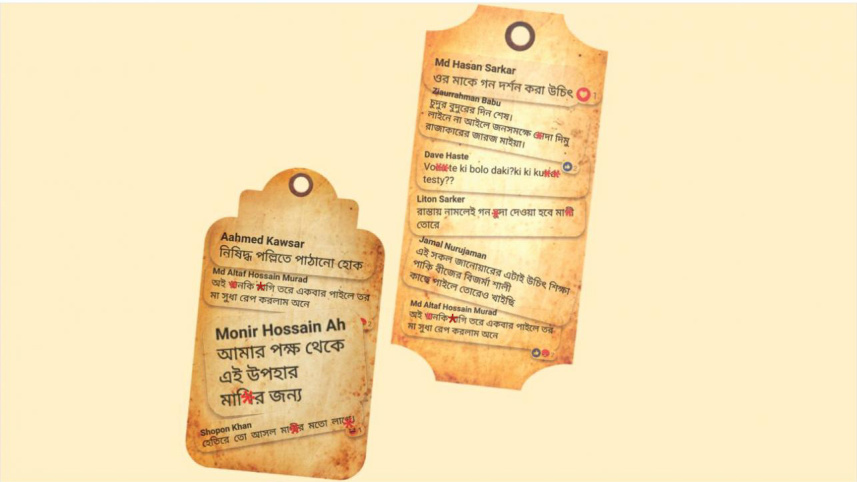 Aahmed Kawsar
নিষিদ্ধ পল্লিতে পাঠানো হোক
Md Altaf Hossain Murad
অই তরে একবার পাইলে তর
মা সুধা রেপ করলাম অনে
Monir Hossain Ah
আমার পক্ষ থেকে
এই উপহার
জন্য
Shopon Khan
তো আসল মতো
Md Hasan Sarkar
ওর মাকে গন দর্শন করা উচিৎ
Ziaurrahman Babu
চুদুর বুদুরের দিন শেষ।
লাইনে না আইলে জনসমক্ষে দিমু
রাজাকারের জারজ মাইয়া।
Dave Haste
ki bolo daki?ki ki
testy??
Liton Sarker
রাস্তায় নামলেই গন দেওয়া হবে
তোরে
Jamal Nurujaman
এই সকল জানোয়ারের এটাই উচিৎ শিক্ষা
পাকি বীজের বিজর্মা শালী
পাইলে তোরেও খাইছি
Md Altaf Hossain Murad
অই তরে একবার পাইলে তর
মা সুধা রেপ করলাম অনে